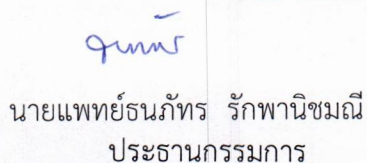 นายแพทย์ธนภัทร รักพานิชมณี
ประธานกรรมการ